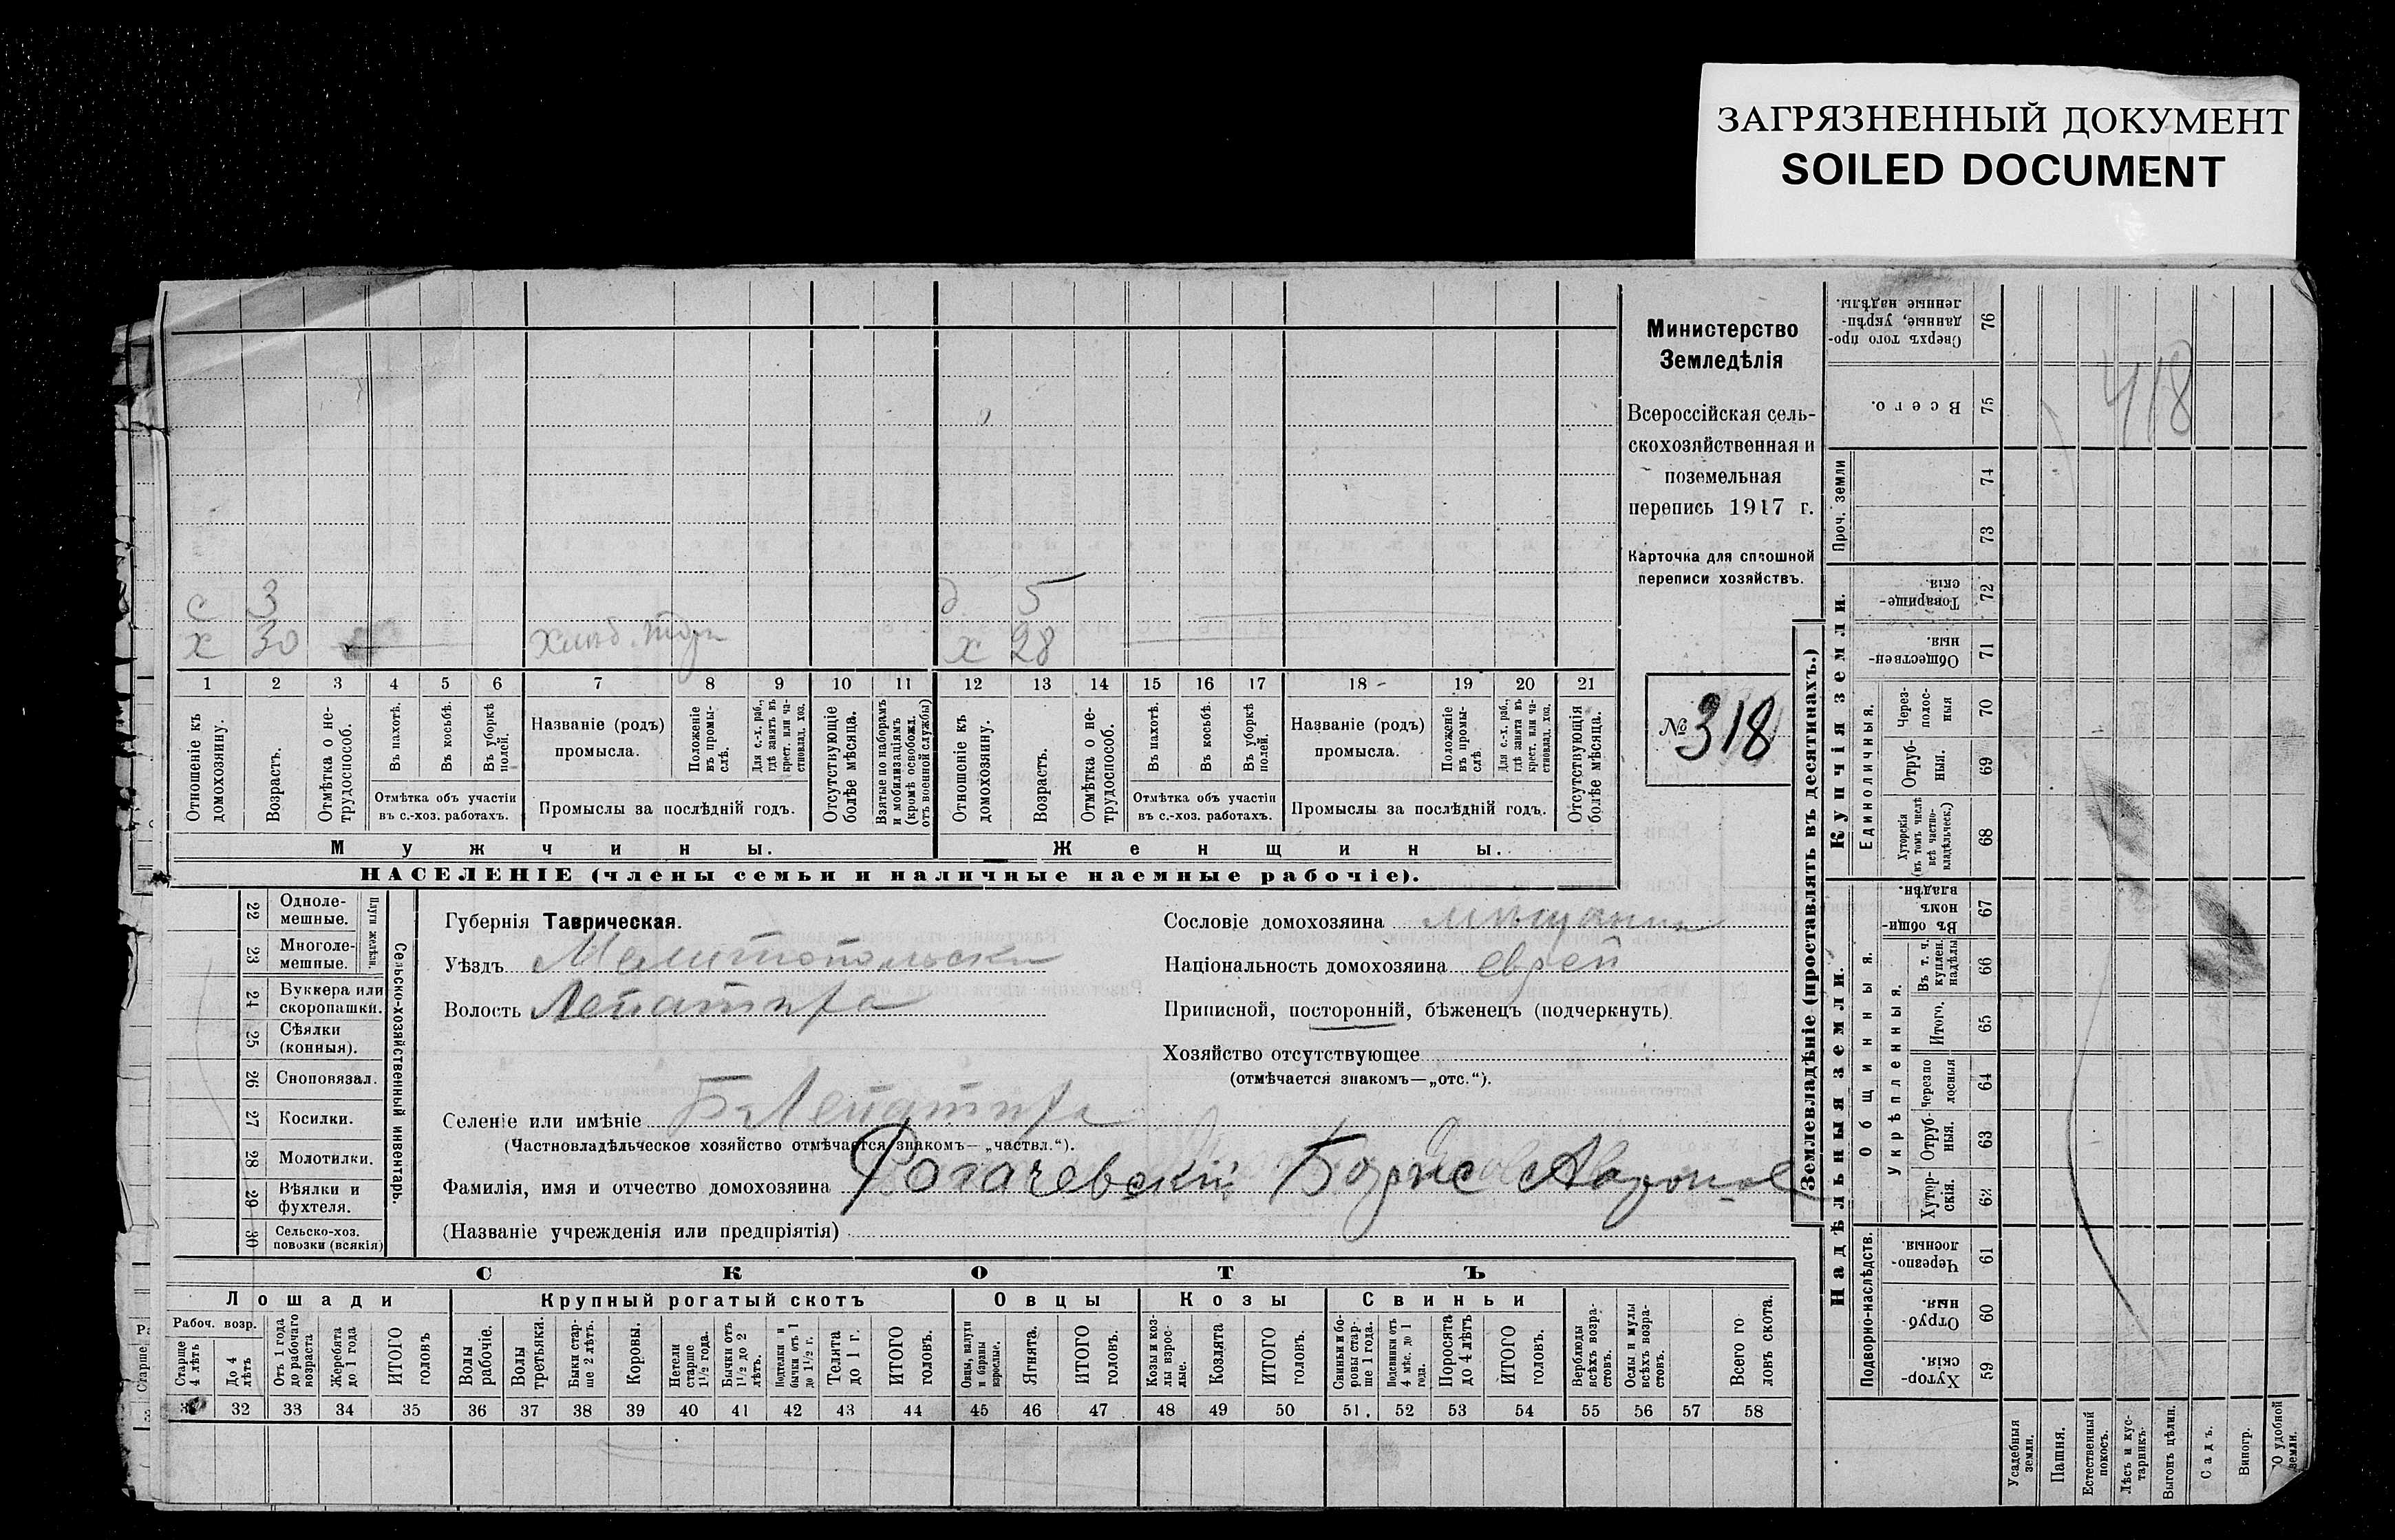 ЗАГРЯЗНЕННЫЙ ДОКУМЕНТ
SOILED DOCUMENT
Министерство
Земледѣлія
Всероссійская сель-
скохозяйственная и
поземельная
перепись 1917 г.
Карточка для сплошной
переписи хозяйствъ.
№ 318
418
с 3
д 5
х 30
х 28
1 2 3 4 5 6 7 8 9 10 11 12 13 14 15 16 17 18 19 20 21
Отношеніе къ домохозяину.
Возрастъ.
Отмѣтка о не-трудоспособ.
Въ пахотѣ.
Въ косьбѣ.
Въ уборкѣ полей.
Отмѣтка объ участіи
въ с.-хоз. работахъ.
Названіе (родъ)
промысла.
Положеніе въ промы-слѣ.
Для с.-х. раб., гдѣ занятъ въ крест. или ча-стновлад. хоз.
Промыслы за послѣдній годъ.
Отсутствующіе болѣе мѣсяца.
Взятые по наборамъ и мобилизаціямъ (кромѣ освобожд. отъ военной службы)
Отношеніе къ домохозяину.
Возрастъ.
Отмѣтка о не-трудоспособ.
Въ пахотѣ.
Въ косьбѣ.
Въ уборкѣ полей.
Отмѣтка объ участіи
въ с.-хоз. работахъ.
Названіе (родъ)
промысла.
Положеніе въ промы-слѣ
Для с.-х. раб., гдѣ занята въ крест. или ча-стновлад. хоз.
Промыслы за послѣдній годъ.
Отсутствующія болѣе мѣсяца.
Мужчины.
Женщины.
НАСЕЛЕНІЕ (члены семьи и наличные наемные рабочіе).
22 Одноле-мешные.
23 Многоле-мешные.
Плуги желѣзн.
24 Буккера или скоропашки.
25 Сѣялки (конныя).
26 Сноповязал.
27 Косилки.
28 Молотилки.
29 Вѣялки и фухтеля.
30 Сельско-хоз. повозки (всякія)
Сельско-хозяйственный инвентарь.
Губернія Таврическая.
Уѣздъ Мелитопольски
Волость Лепатиха
Селеніе или имѣніе Б-Лепатиха
(Частновладѣльческое хозяйство отмѣчается знакомъ—„частвл.“).
Фамилія, имя и отчество домохозяина Рогачевскій Борис Аароно
(Названіе учрежденія или предпріятія)
Сословіе домохозяина мѣщанин
Національность домохозяина еврей
Приписной, посторонній, бѣженецъ (подчеркнуть)
Хозяйство отсутствующее
(отмѣчается знакомъ—„отс.“).
СКОТЪ
Лошади
Крупный рогатый скотъ
Овцы
Козы
Свиньи
Рабоч. возр.
Старше 4 лѣтъ
До 4 лѣтъ
Отъ 1 года до рабочаго возраста
Жеребята до 1 года
ИТОГО головъ
Волы рабочіе.
Волы третьяки.
Быки стар-ше 2 лѣтъ.
Коровы.
Нетели старше 1½ года.
Бычки отъ 1½ до 2 лѣтъ.
Подтелки и бычки отъ 1 до 1½ г.
Телята до 1 г.
ИТОГО головъ.
Овцы, валухи и бараны взрослые.
Ягнята.
ИТОГО головъ.
Козы и коз-лы взрос-лые.
Козлята
ИТОГО головъ.
Свиньи и бо-ровы стар-ше 1 года.
Подсвинки отъ 4 мѣс. до 1 года.
Поросята до 4 лѣтъ
ИТОГО головъ.
Верблюды всѣхъ возра-стовъ.
Ослы и мулы всѣхъ возра-стовъ.
Всего го-ловъ скота.
32 33 34 35 36 37 38 39 40 41 42 43 44 45 46 47 48 49 50 51 52 53 54 55 56 57 58
Землевладѣніе (проставлять въ десятинахъ.)
Надѣльныя земли.
Купчія земли.
Проч. земли
Подворно-наслѣдств.
Общинныя.
Укрѣпленныя.
Единоличныя.
Хутор-скія. 59
Отруб-ныя. 60
Черезпо-лосныя. 61
Хутор-скія. 62
Отруб-ныя. 63
Черезпо-лосныя 64
Итого. 65
Въ т. ч. куплен. надѣлы 66
Въ общи-номъ владѣн. 67
Хуторскія (въ томъ числѣ всѣ частно-владѣльческ.) 68
Отруб-ныя. 69
Через-полос-ныя 70
Обществен-ныя. 71
Товарище-скія. 72
73
74
Всего. 75
Сверхъ того про-данные, укрѣп-ленные надѣлы. 76
Усадебныя земли.
Пашня.
Естественный покосъ.
Лѣсъ и кус-тарникъ.
Выгонъ цѣлин.
Садъ.
Виногр.
удобной земли.